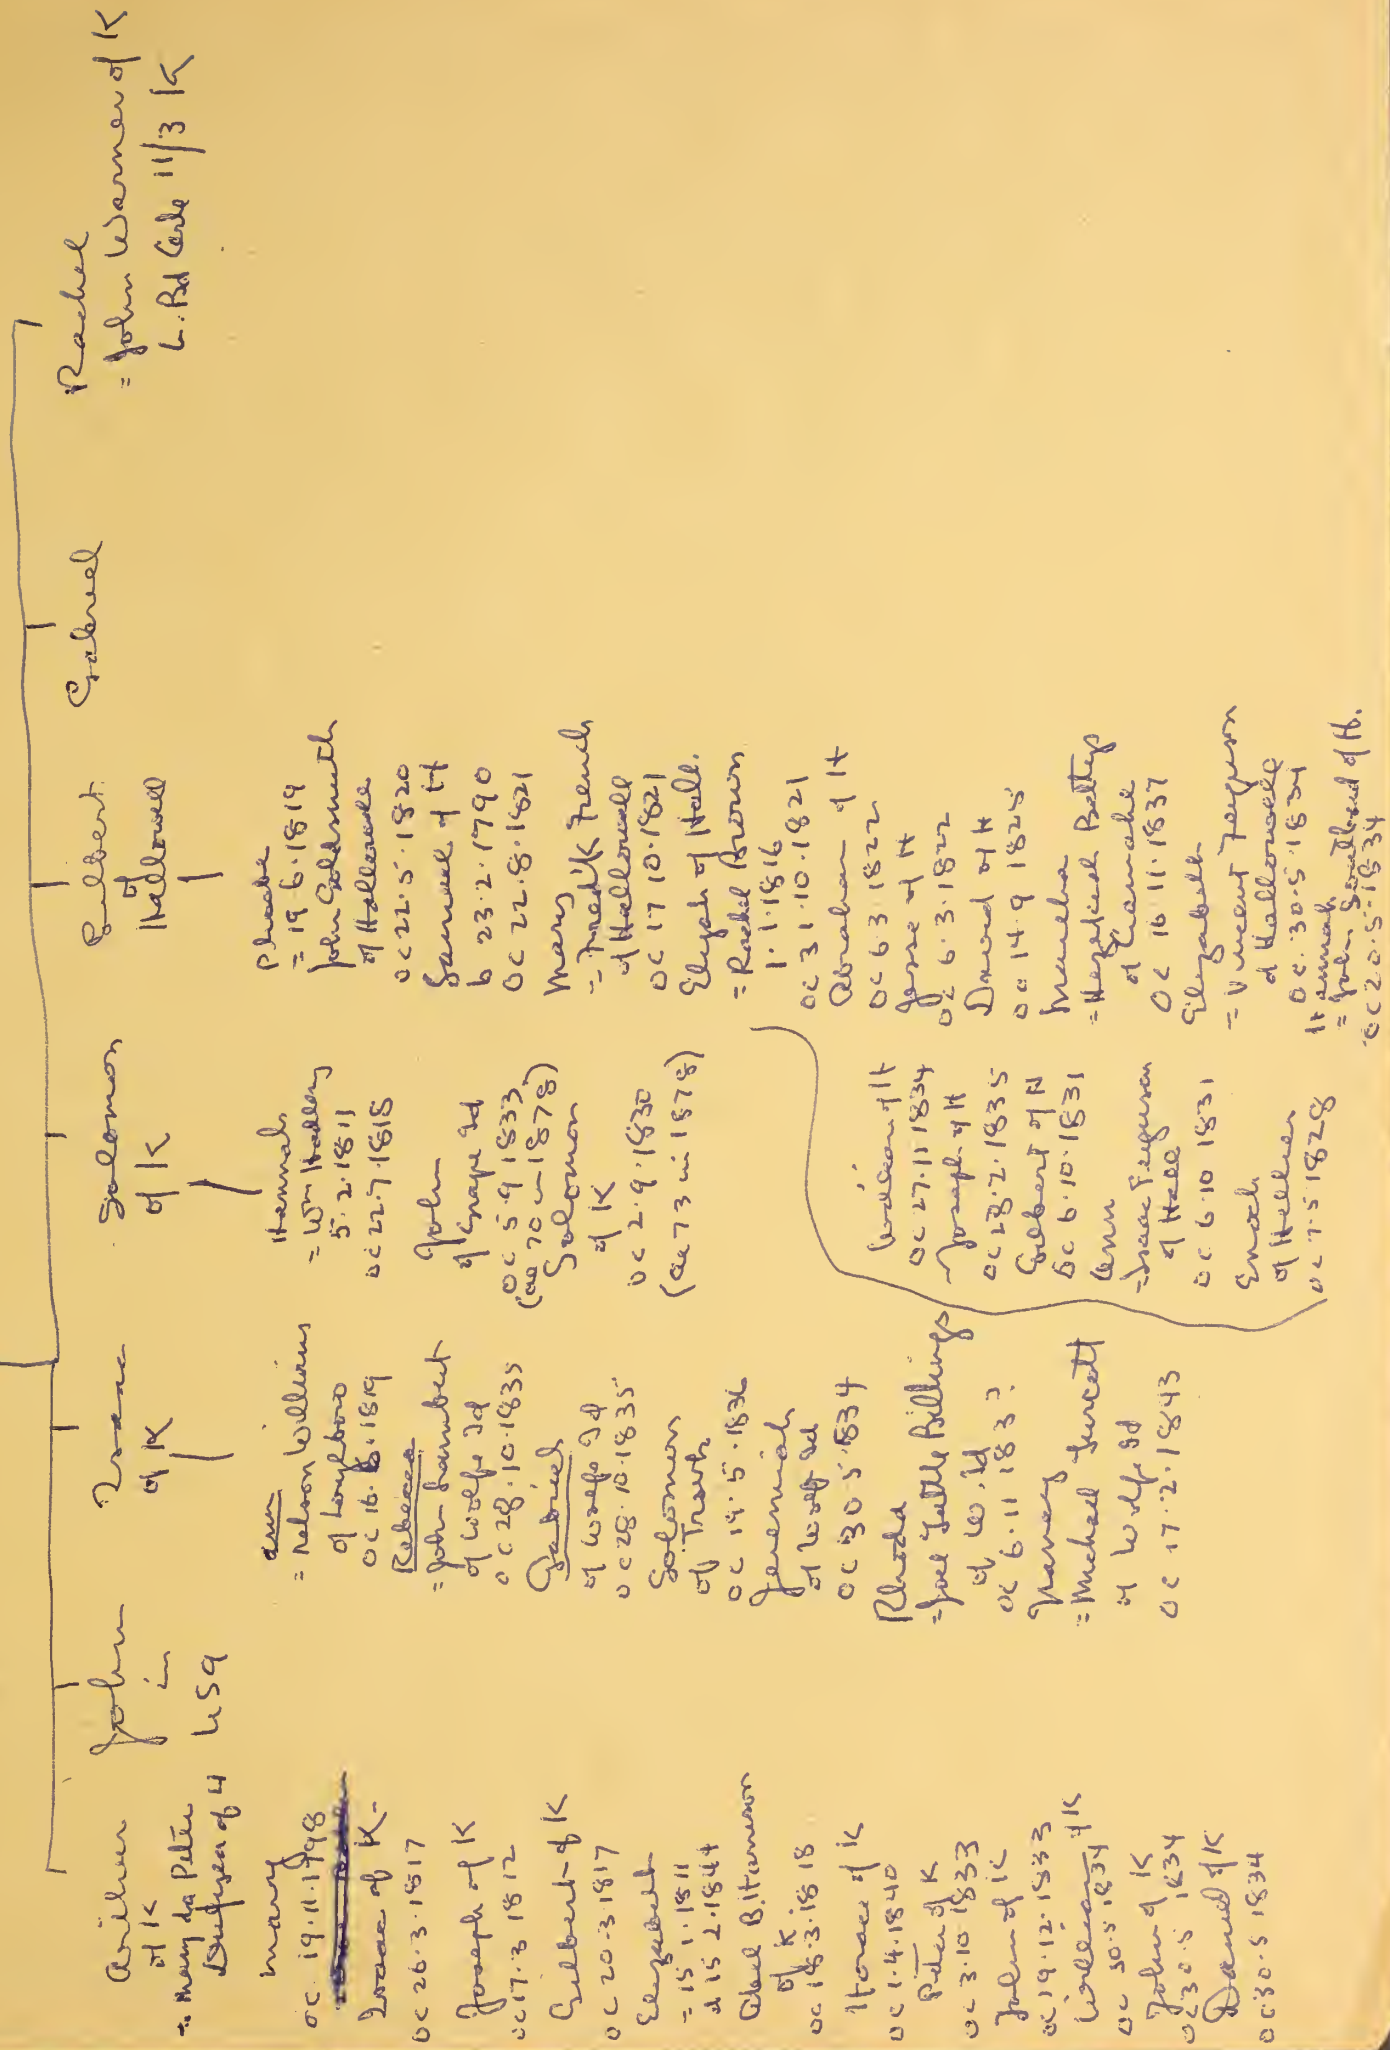 Arthur
of K
= Mary da Peter
Dulyea of 4
Mary
oc 19.11.1798
Isaac of K.
oc 26.3.1817
Joseph of K
oc 17.3 1812
Gilbert of K
oc 20.3.1817
Elizabeth
= 15 1.1811
d 15 2.1844
Abel Bitterson
of K
oc 18.3.1818
Horace of K
oc 1.4.1840
Peter of K
oc 3.10 1833
John of K
oc 19.12.1833
William of K
oc 30.5 1834
John of K
oc 30.5 1834
Daniel of K
oc 30.5 1834
John
in
USA
Isaac
of K
Ann
= Nelson Williams
of Loughboro
oc 16.6.1819
Rebecca
= John Lambert
of Wolfe Id
oc 28.10.1835
Gabriel
of Wolfe Id
oc 28.10.1835
Solomon
of Trash
oc 19.5.1836
Jeremiah
of Wolfe Id
oc 30.5.1834
Rhoda
= Joel Tuttle Billings
of Wo. Id
oc 6.11 1833.
Nancy
= Michael
of Wolfe Id
oc 17.2.1843
Solomon
of K
Hannah
= Wm Hadley
5.2.1811
oc 22.7.1818
John
of Grape Id
oc 5.9 1833
(ae 70 in 1878)
Solomon
of K
oc 2.9.1830
(ae 73 in 1878)
William of H
oc 27.11 1834
Joseph of H
oc 28.2.1835
Gilbert of H
oc 6.10.1831
Ann
= Isaac Ferguson
of Hall
oc 6.10 1831
Enoch
of
oc 7.5 1828
Gilbert
of
Hallowell
Phoebe
= 19.6.1819
John Goldsmith
of Hallowell
oc 22.5.1820
Samuel of H
b 23.2.1790
oc 22.8.1821
Mary
= Fred'k French
of Hallowell
oc 17 10.1821
Elijah of Hall.
= Rachel Brown
1.1.1816
oc 31.10.1821
Abraham of H
oc 6 3.1822
Jesse of H
oc 6.3.1822
David of H
oc 14.9 1825
= Hezekiah Bettys
of
oc 16 11.1837
Elizabeth
= Vincent Ferguson
of Hallowell
oc. 30.5.1834
Hannah
= John Southard of H.
oc 20.5.1834
Gabriel
Rachel
= John Warner of K
L. Bd Certe 11/3 K